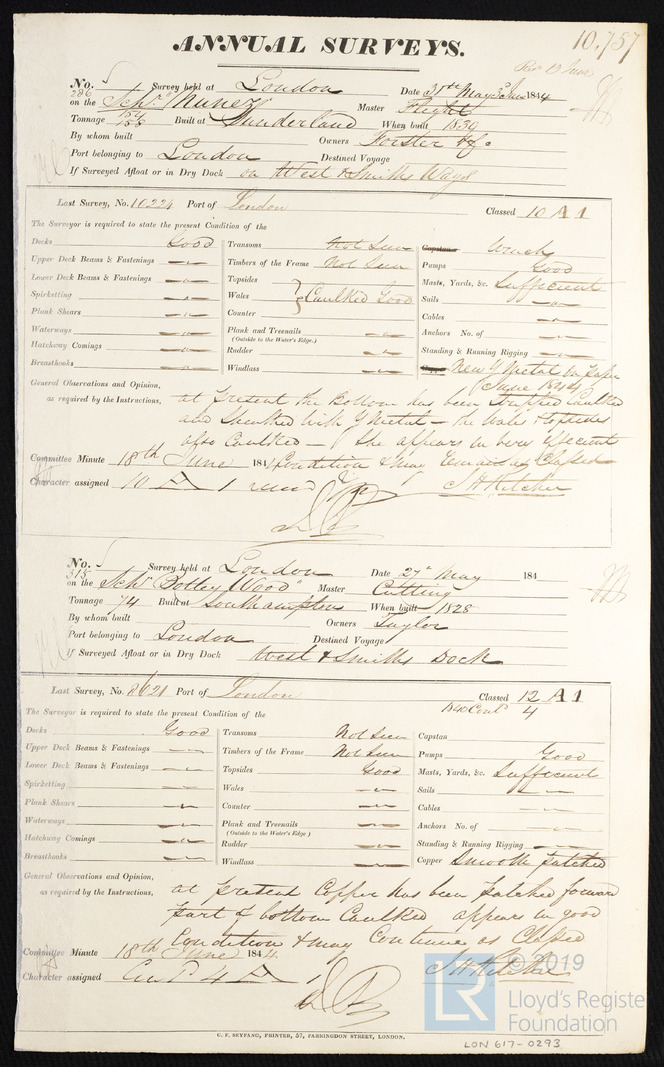 ANNUAL SURVEYS.
10,757
No. 286 Survey held at London Date 31st May 3d June 1844
on the Schr. "Nunez" Master Flight
Tonnage Built at Sunderland When built 1839
By whom built Owners Forster &c
Port belonging to London Destined Voyage
If Surveyed Afloat or in Dry Dock on West & Smiths Ways
Last Survey, No. 10224 Port of London Classed 10 A 1
The Surveyor is required to state the present Condition of the
Decks Good
Upper Deck Beams & Fastenings "
Lower Deck Beams & Fastenings "
Spirketting "
Plank Shears "
Waterways "
Hatchway Comings "
Breasthooks "
Transoms Not Seen
Timbers of the Frame Not Seen
Topsides
Wales Caulked Good
Counter
Plank and Treenails "
(Outside to the Water's Edge.)
Rudder "
Windlass "
Capstan Winch
Pumps Good
Masts, Yards, &c. Sufficient
Sails "
Cables "
Anchors No. of "
Standing & Running Rigging "
Copper New Y Metal on
(June 1844)
General Observations and Opinion,
as required by the Instructions,
at present the Bottom has been Stripped Caulked
and Sheathed with Y Metal – the Wales & topsides
also Caulked – She appears in very decent
Condition & may remain as Classed
Committee Minute 18th June 1844
J H Kitcher
Character assigned 10 A 1
No. 315 Survey held at London Date 27th May 184
on the Schr. "Botley Wood" Master Cutting
Tonnage 74 Built at Southampton When built 1828
By whom built Owners Taylor
Port belonging to London Destined Voyage
If Surveyed Afloat or in Dry Dock West & Smiths Dock
Last Survey, No. 8621 Port of London Classed 12 A 1
1840 Contd 4
The Surveyor is required to state the present Condition of the
Decks Good
Upper Deck Beams & Fastenings "
Lower Deck Beams & Fastenings "
Spirketting "
Plank Shears "
Waterways "
Hatchway Comings "
Breasthooks "
Transoms Not Seen
Timbers of the Frame Not Seen
Topsides Good
Wales "
Counter "
Plank and Treenails "
(Outside to the Water's Edge.)
Rudder "
Windlass "
Capstan
Pumps Good
Masts, Yards, &c. Sufficient
Sails "
Cables "
Anchors No. of "
Standing & Running Rigging "
Copper Smooth patched
General Observations and Opinion,
as required by the Instructions,
at present Copper has been patched forward
part of bottom Caulked appears in good
Condition & may Continue as Classed
Committee Minute 18th June 1844
J H Kitcher
Character assigned Contd 4 A 1
C. F. SEYFANG, PRINTER, 57, FARRINGDON STREET, LONDON.
LR © 2019
Lloyd's Register
Foundation
LON 617-0293